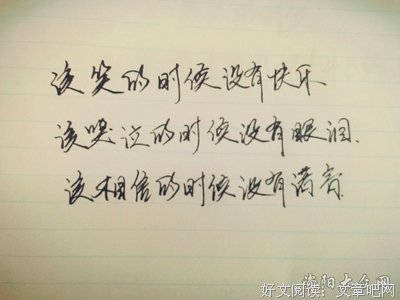 该笑的时候没有快乐
该哭泣的时候没有眼泪.
该相信的时候没有诺言
好文阅读：文章吧网